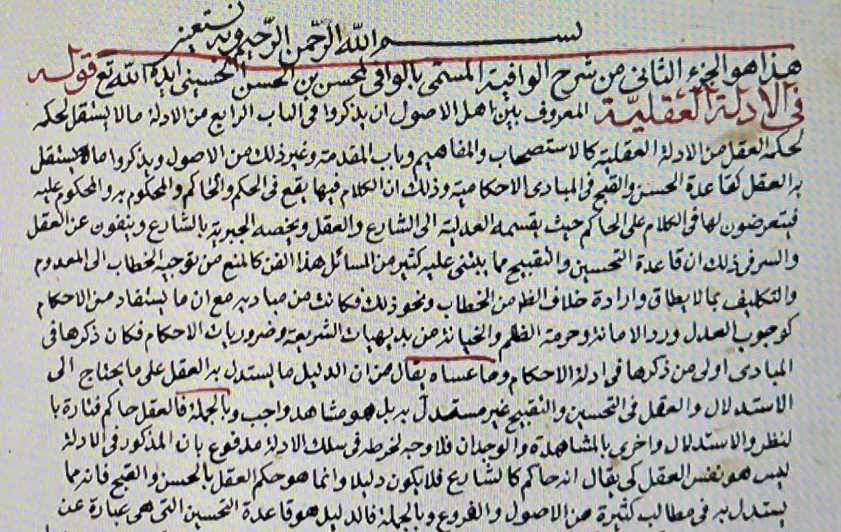 بسم الله الرحمن الرحيم وبه نستعين
هذا هو الجزء الثانى من شرح الوافية المسمى بالوافى لمحسن بن الحسن الحسينى ايده الله تع قوله
فى الادلة العقلية المعروف بين اهل الاصول ان يذكروا فى الباب الرابع من الادلة مالا يستقل لحكمه
لحكمه العقل من الادلة العقلية كالاستصحاب والمفاهيم وباب المقدمة وغير ذلك من الاصول ويذكروا ما يستقل
به العقل كقاعدة الحسن والقبح فى المبادى الاحكامية وذلك ان الكلام فيها يقع فى الحكم والحاكم والمحكوم به والمحكوم عليه
فيتعرضون لها فى الكلام على الحاكم حيث يقسمه العدلية الى الشارع والعقل ويخصه الجبرية بالشارع وينفون عن العقل
والسر فى ذلك ان قاعدة التحسين والتقبيح مما يبتنى عليه كثير من المسائل هذا الفن كالمنع من توجيه الخطاب الى المعدوم
والتكليف بما لا يطاق وارادة خلاف الظ من الخطاب ونحو ذلك فكانت من مباديه مع ان ما يستفاد من الاحكام
كوجوب العدل ورد الامانة وحرمة الظلم والخيانة من بديهيات الشريعة وضروريات الاحكام فكان ذكرها فى
المبادى اولى من ذكرها فى ادلة الاحكام وما عساه يقال من ان الدليل ما يستدل به العقل على ما يحتاج الى
الاستدلال والعقل فى التحسين والتقبيح غير مستدل به بل هو مشاهد واجب وبالجملة فالعقل حاكم فتارة با
لنظر والاستدلال واخرى بالمشاهدة والوجدان فلا وجه لخرطه فى سلك الادلة مدفوع بان المذكور فى الادلة
ليس هو نفس العقل كى يقال انه حاكم كالشارع فلا يكون دليلا وانما هو حكم العقل بالحسن والقبح فانه مما
يستدل به فى مطالب كثيرة من الاصول والفروع وبالجملة فالدليل هو قاعدة التحسين التى هى عبارة عن